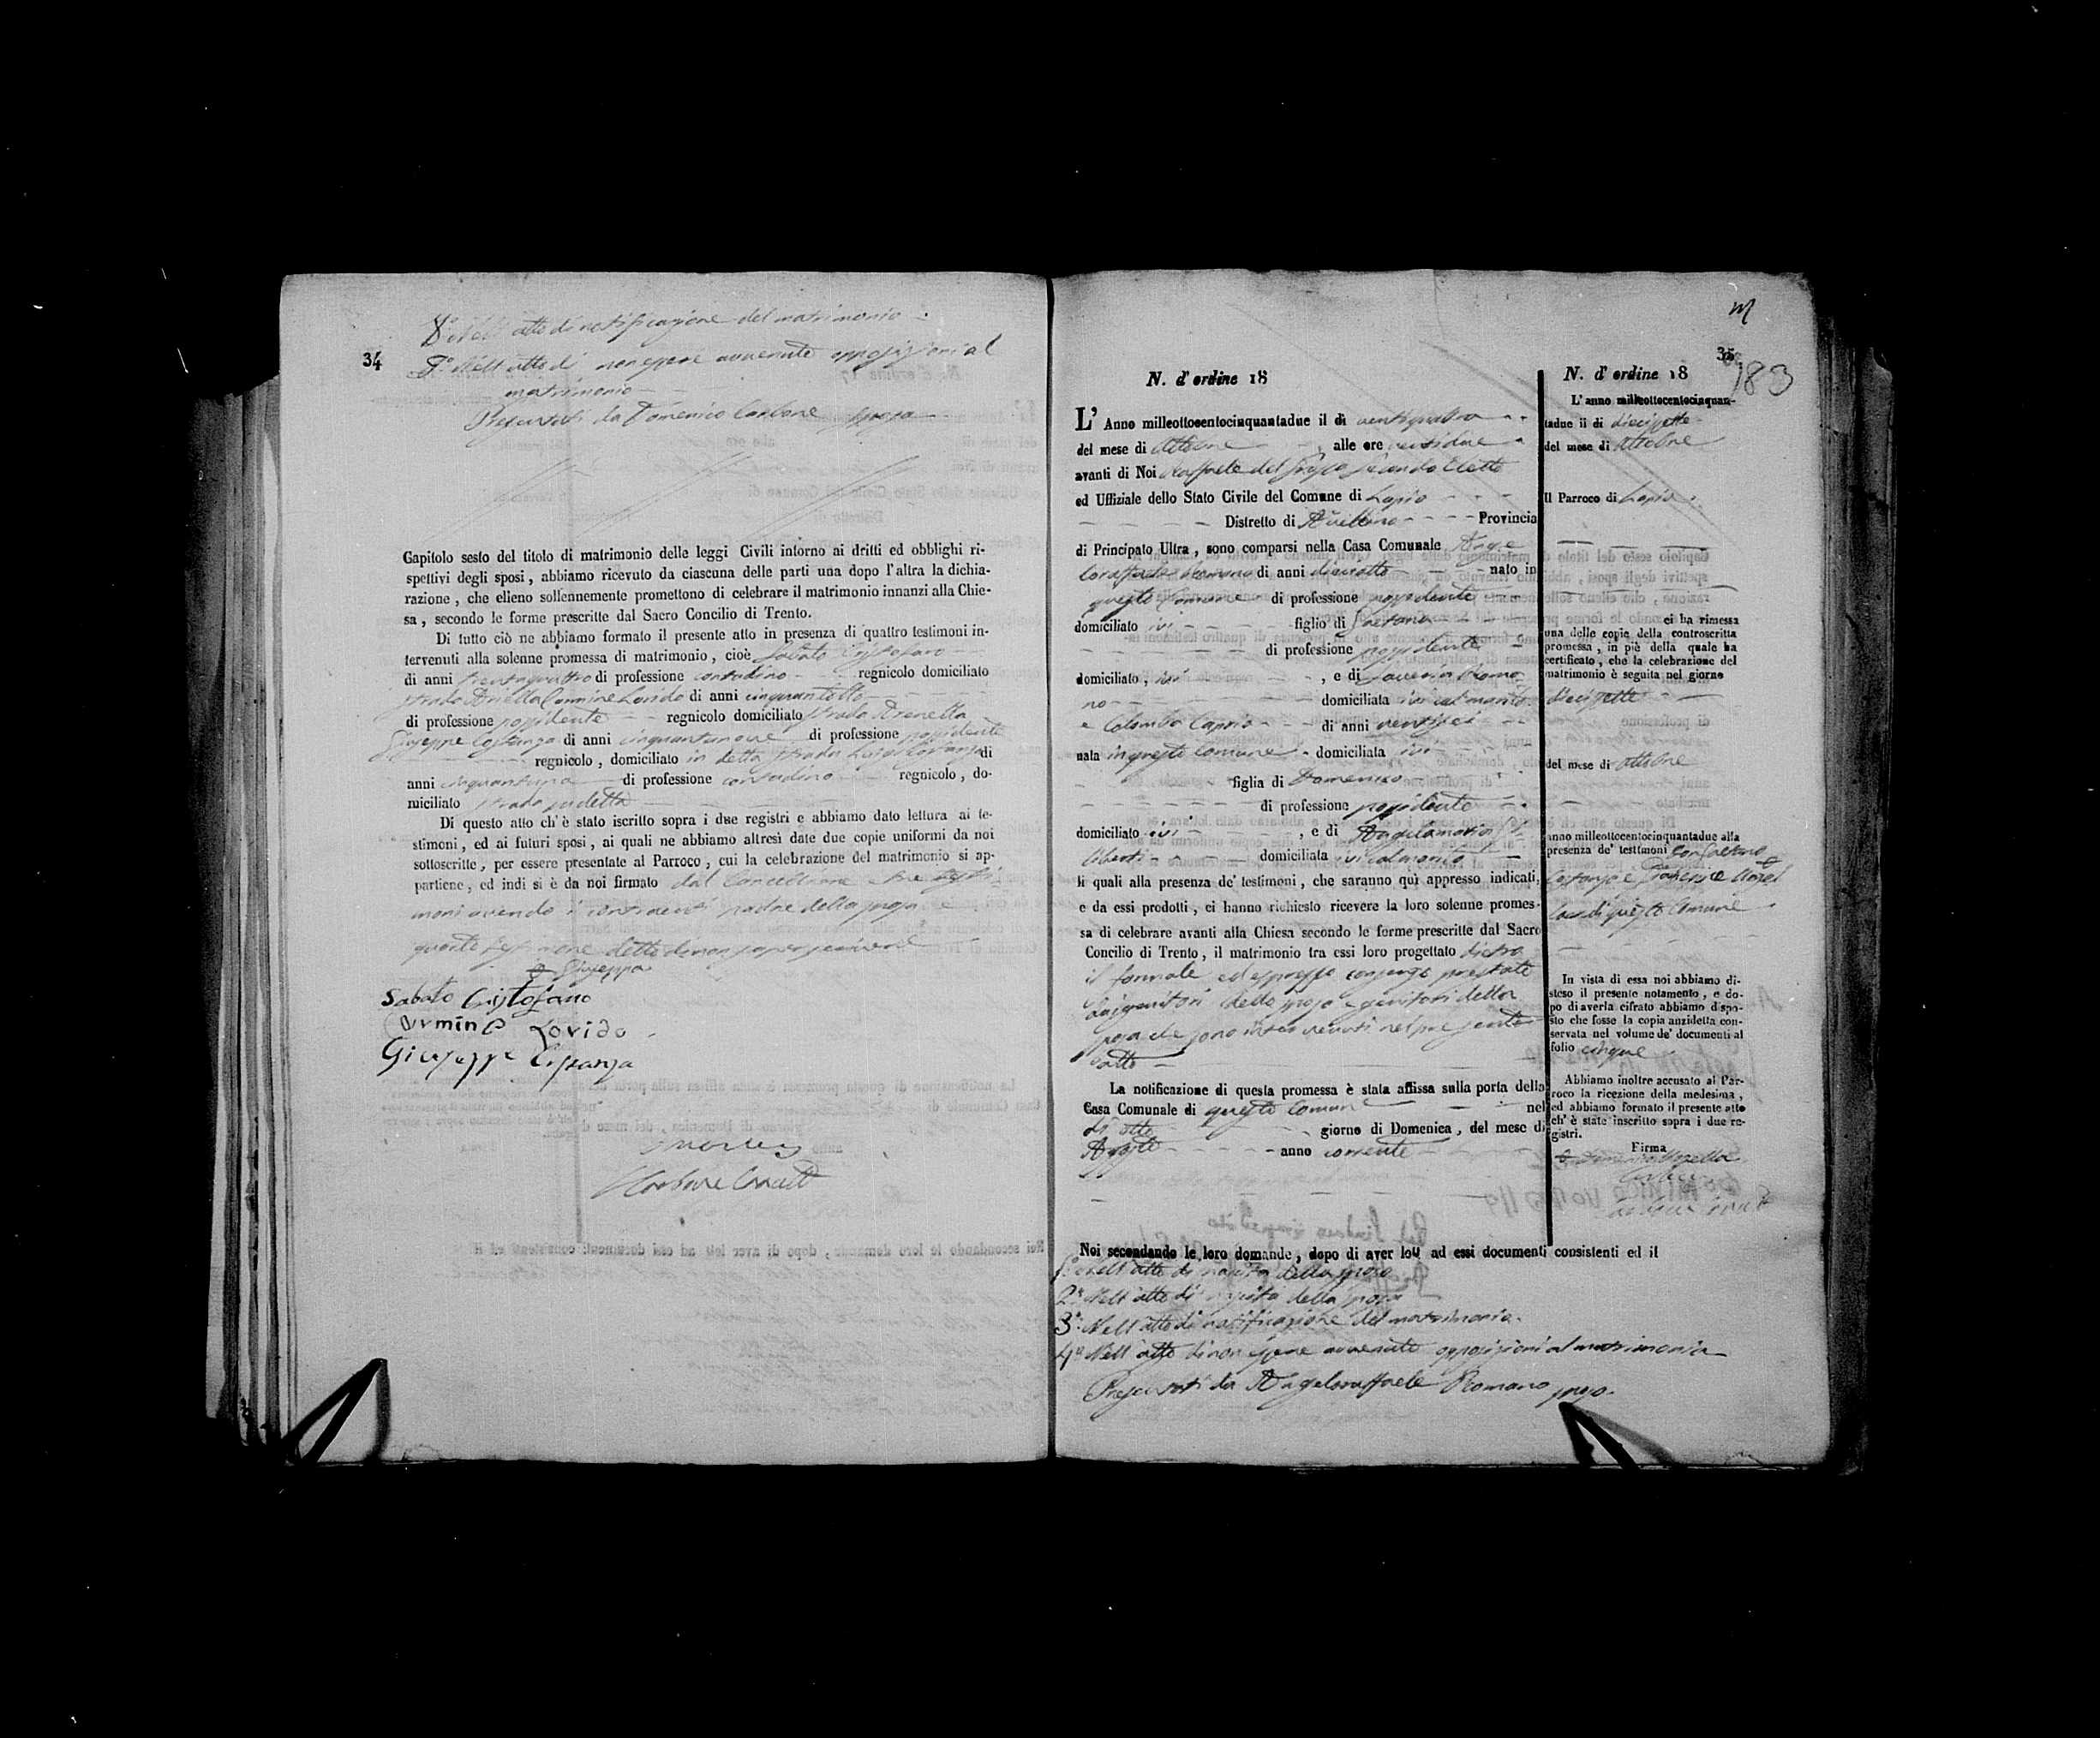 8° Nell'atto di notificazione del matrimonio
34
9° Nell'atto di non essere avvenute opposizioni al
matrimonio
Presentati da Domenico Carbone sposo
Capitolo sesto del titolo di matrimonio delle leggi Civili intorno ai dritti ed obblighi ri-
spettivi degli sposi, abbiamo ricevuto da ciascuna delle parti una dopo l'altra la dichia-
razione, che elleno sollennemente promettono di celebrare il matrimonio innanzi alla Chie-
sa, secondo le forme prescritte dal Sacro Concilio di Trento.
Di tutto ciò ne abbiamo formato il presente atto in presenza di quattro testimoni in-
tervenuti alla solenne promessa di matrimonio, cioè Sabato Cristofano
di anni trentaquattro di professione contadino regnicolo domiciliato
strada Carmine Lorido di anni cinquantotto
di professione possidente regnicolo domiciliato strada
Giuseppe Costanza di anni cinquantanove di professione possidente
regnicolo, domiciliato in detta strada Costanza di
anni cinquantuno di professione contadino regnicolo, do-
miciliato strada sudetta
Di questo atto ch'è stato iscritto sopra i due registri e abbiamo dato lettura ai te-
stimoni, ed ai futuri sposi, ai quali ne abbiamo altresì date due copie uniformi da noi
sottoscritte, per essere presentate al Parroco, cui la celebrazione del matrimonio si ap-
partiene, ed indi si è da noi firmato dal Cancelliere e tre testi-
moni avendo i contraenti padre della sposa e
quarto testimone detto di non saper scrivere
Giuseppe
Sabato Cristofano
Carmine Lorido
Giuseppe Costanza
Carbone
35
183
N. d'ordine 18
L'Anno milleottocentocinquantadue il dì ventiquattro
del mese di Ottobre alle ore ventidue
avanti di Noi Raffaele del secondo Eletto
ed Uffiziale dello Stato Civile del Comune di Lapio
Distretto di Avellino Provincia
di Principato Ultra, sono comparsi nella Casa Comunale Ange
loraffaele Romano di anni diciotto nato in
questo Comune di professione possidente
domiciliato ivi figlio di Gaetano
di professione possidente
domiciliato, ivi, e di Saveria Roma
no domiciliata ivi col marito
e Colomba Caprio di anni ventisei
nata in questo Comune domiciliata ivi
figlia di Domenico
di professione possidente
domiciliato ivi, e di Angelamaria
liberti domiciliata ivi col marito
li quali alla presenza de' testimoni, che saranno quì appresso indicati,
e da essi prodotti, ci hanno richiesto ricevere la loro solenne promes-
sa di celebrare avanti alla Chiesa secondo le forme prescritte dal Sacro
Concilio di Trento, il matrimonio tra essi loro progettato dietro
il formale ed espresso consenso prestato
dai genitori dello sposo e genitori della
sposa che sono intervenuti nel presente
atto
La notificazione di questa promessa è stata affissa sulla porta della
Casa Comunale di questo Comune nel
dì otto giorno di Domenica, del mese di
Agosto anno corrente
Noi secondando le loro domande, dopo di aver letti ad essi documenti consistenti ed il
1° Nell'atto di nascita dello sposo
2° Nell'atto di nascita della sposa
3° Nell'atto di notificazione del matrimonio.
4° Nell'atto di non essere avvenute opposizioni al matrimonio
Presentati da Angeloraffaele Romano sposo.
N. d'ordine 18
L'anno milleottocentocinquan-
tadue il dì diecisette
del mese di Ottobre
Il Parroco di Lapio
ci ha rimessa
una delle copie della controscritta
promessa, in piè della quale ha
certificato, che la celebrazione del
matrimonio è seguita nel giorno
diecisette
del mese di Ottobre
anno milleottocentocinquantadue alla
presenza de' testimoni
Costanza e
di questo Comune
In vista di essa noi abbiamo di-
steso il presente notamento, e do-
po di averla cifrato abbiamo dispo-
sto che fosse la copia anzidetta con-
servata nel volume de' documenti al
folio cinque
Abbiamo inoltre accusato al Par-
roco la ricezione della medesima,
ed abbiamo formato il presente atto
ch'è stato inscritto sopra i due re-
gistri.
Firma